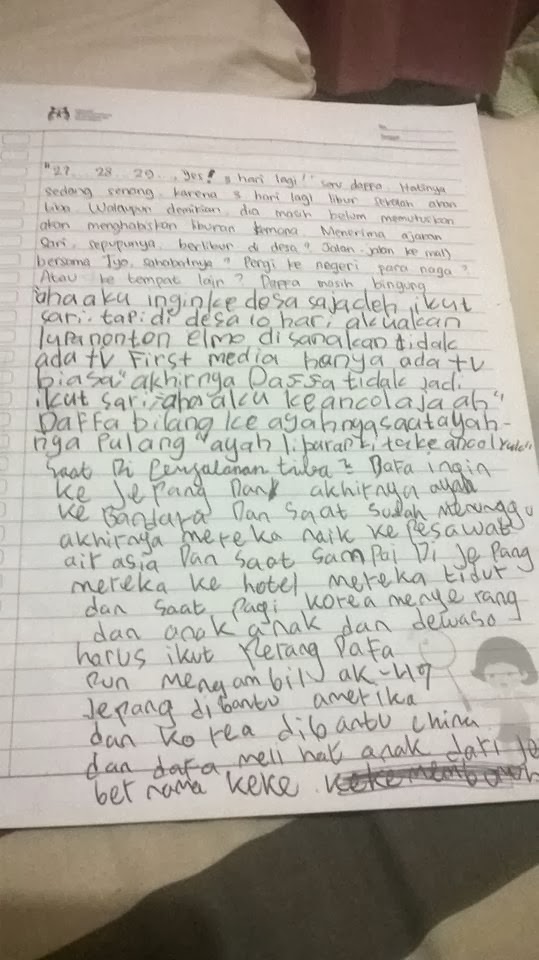 "27.. 28.. 29.. yes! 3 hari lagi!" seru daffa. Hatinya
sedang senang. karena 3 hari lagi libur sekolah akan
tiba. Walaupun demikian, dia masih belum memutuskan
akan menghabiskan liburan kemana. Menerima ajakan
Sari, sepupunya, berlibur di desa? Jalan-jalan ke mall
bersama Tyo, sahabatnya? Pergi ke negeri para naga?
Atau ke tempat lain? Daffa masih bingung
"ahaaku inginke desa sajadeh ikut
sari. tapi di desa 10 hari akuakan
lupanonton elmo disanakan tidak
ada tv First media hanya ada tv
biasa" akhirnya Daffa tidak jadi
ikut sari, "aha aku ke ancolaja ah"
Daffa bilang ke ayahnyasaatayah-
nya Pulang "ayah liburan kitake ancol
Saat Di Perjalanan tiba2 Dafa ingin
ke Jepang Dan akhirnya ayah
ke Bandara Dan saat sudah Menunggu
akhirnya mereka naik ke Pesawat
air asia Dan saat sampai Di Jepang
mereka ke hotel mereka tidur
dan saat Pagi korea menyerang
dan anak anak dan dewaso
harus ikut Perang Dafa
Pun mengambil ak-47
Jepang dibantu amerika
dan korea dibantu china
dan dafa meli hat anak dari
ber nama keke